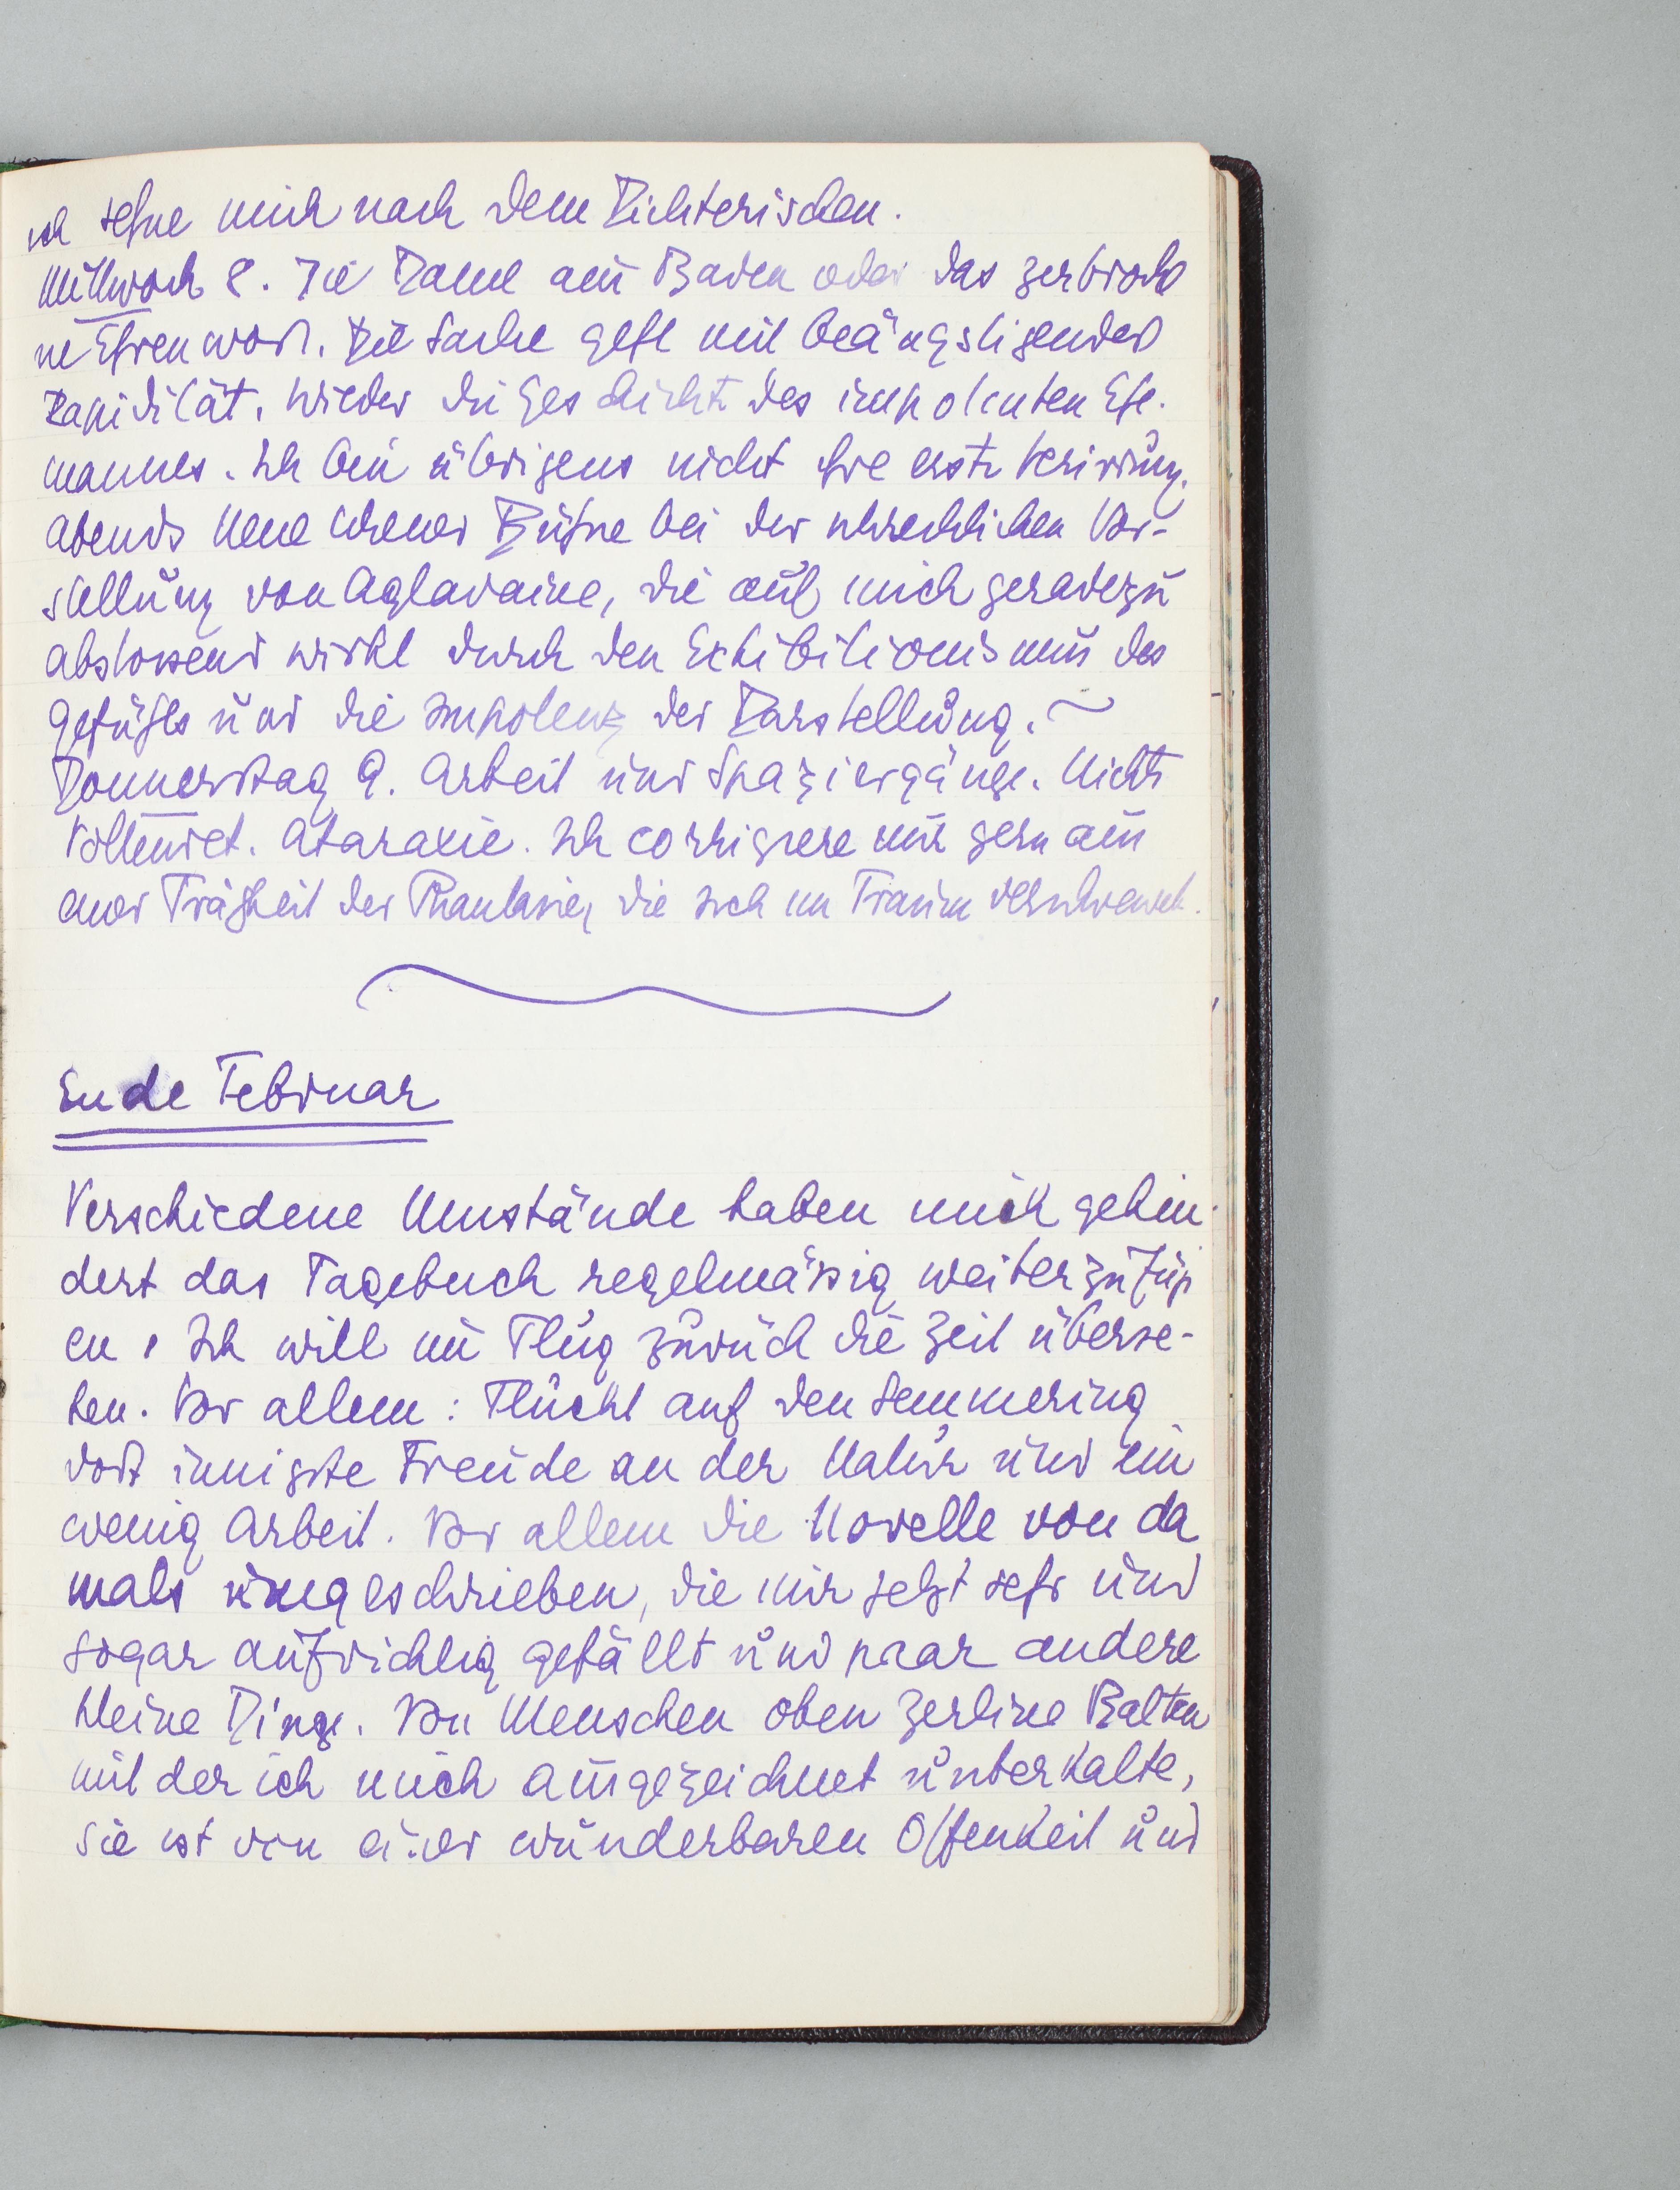 ich sehne mich nach dem Dichterischen.
Mittwoch 8. Die Dame aus Baden oder das zerbroch
ne Ehrenwort. Die Sache geht mit beängstigender
Rapidität. Wieder die Geschichte des impotenten Ehe-
mannes. Ich bin übrigens nicht ihre erste Verirrung.
Abends Neue Wiener Bühne bei der schrecklichen Vor-
stellung von Aglavaine, die auf mich geradezu
abstossend wirkt durch den Exhibitionismus des
Gefühls und die Impotenz der Darstellung. ~
Donnerstag 9. Arbeit und Spaziergänge. Nichts
Vollendet. Ataraxie. Ich corrigiere nur gern aus
einer Trägheit der Phantasie, die sich im Traum verschwendet.
Ende Februar
Verschiedene Umstände haben mich gehin-
dert das Tagebuch regelmässig weiterzufüh
en. Ich will im Flug zurück die Zeit überse-
hen. Vor allem: Flucht auf den Semmering
dort innigste Freude an der Natur und ein
wenig Arbeit. Vor allem die Novelle von da
mals umgeschrieben, die mir jetzt sehr und
sogar aufrichtig gefällt und paar andere
kleine Dinge. Von Menschen oben Zerline Balten
mit der ich mich ausgezeichnet unterhalte,
sie ist von einer wunderbaren Offenheit und